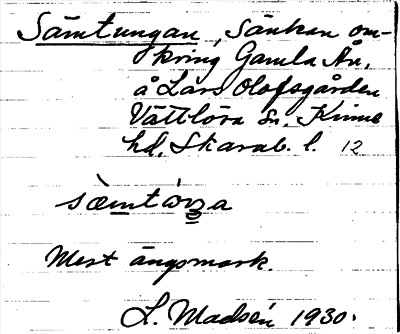 Sämtungan, Sänkan om-
kring Gamla Ån,
å Lars Olofsgården
Vättlösa Sn. Kinne
hd, Skarab. l. 12
Mest ängsmark.
L. Madsén 1930.